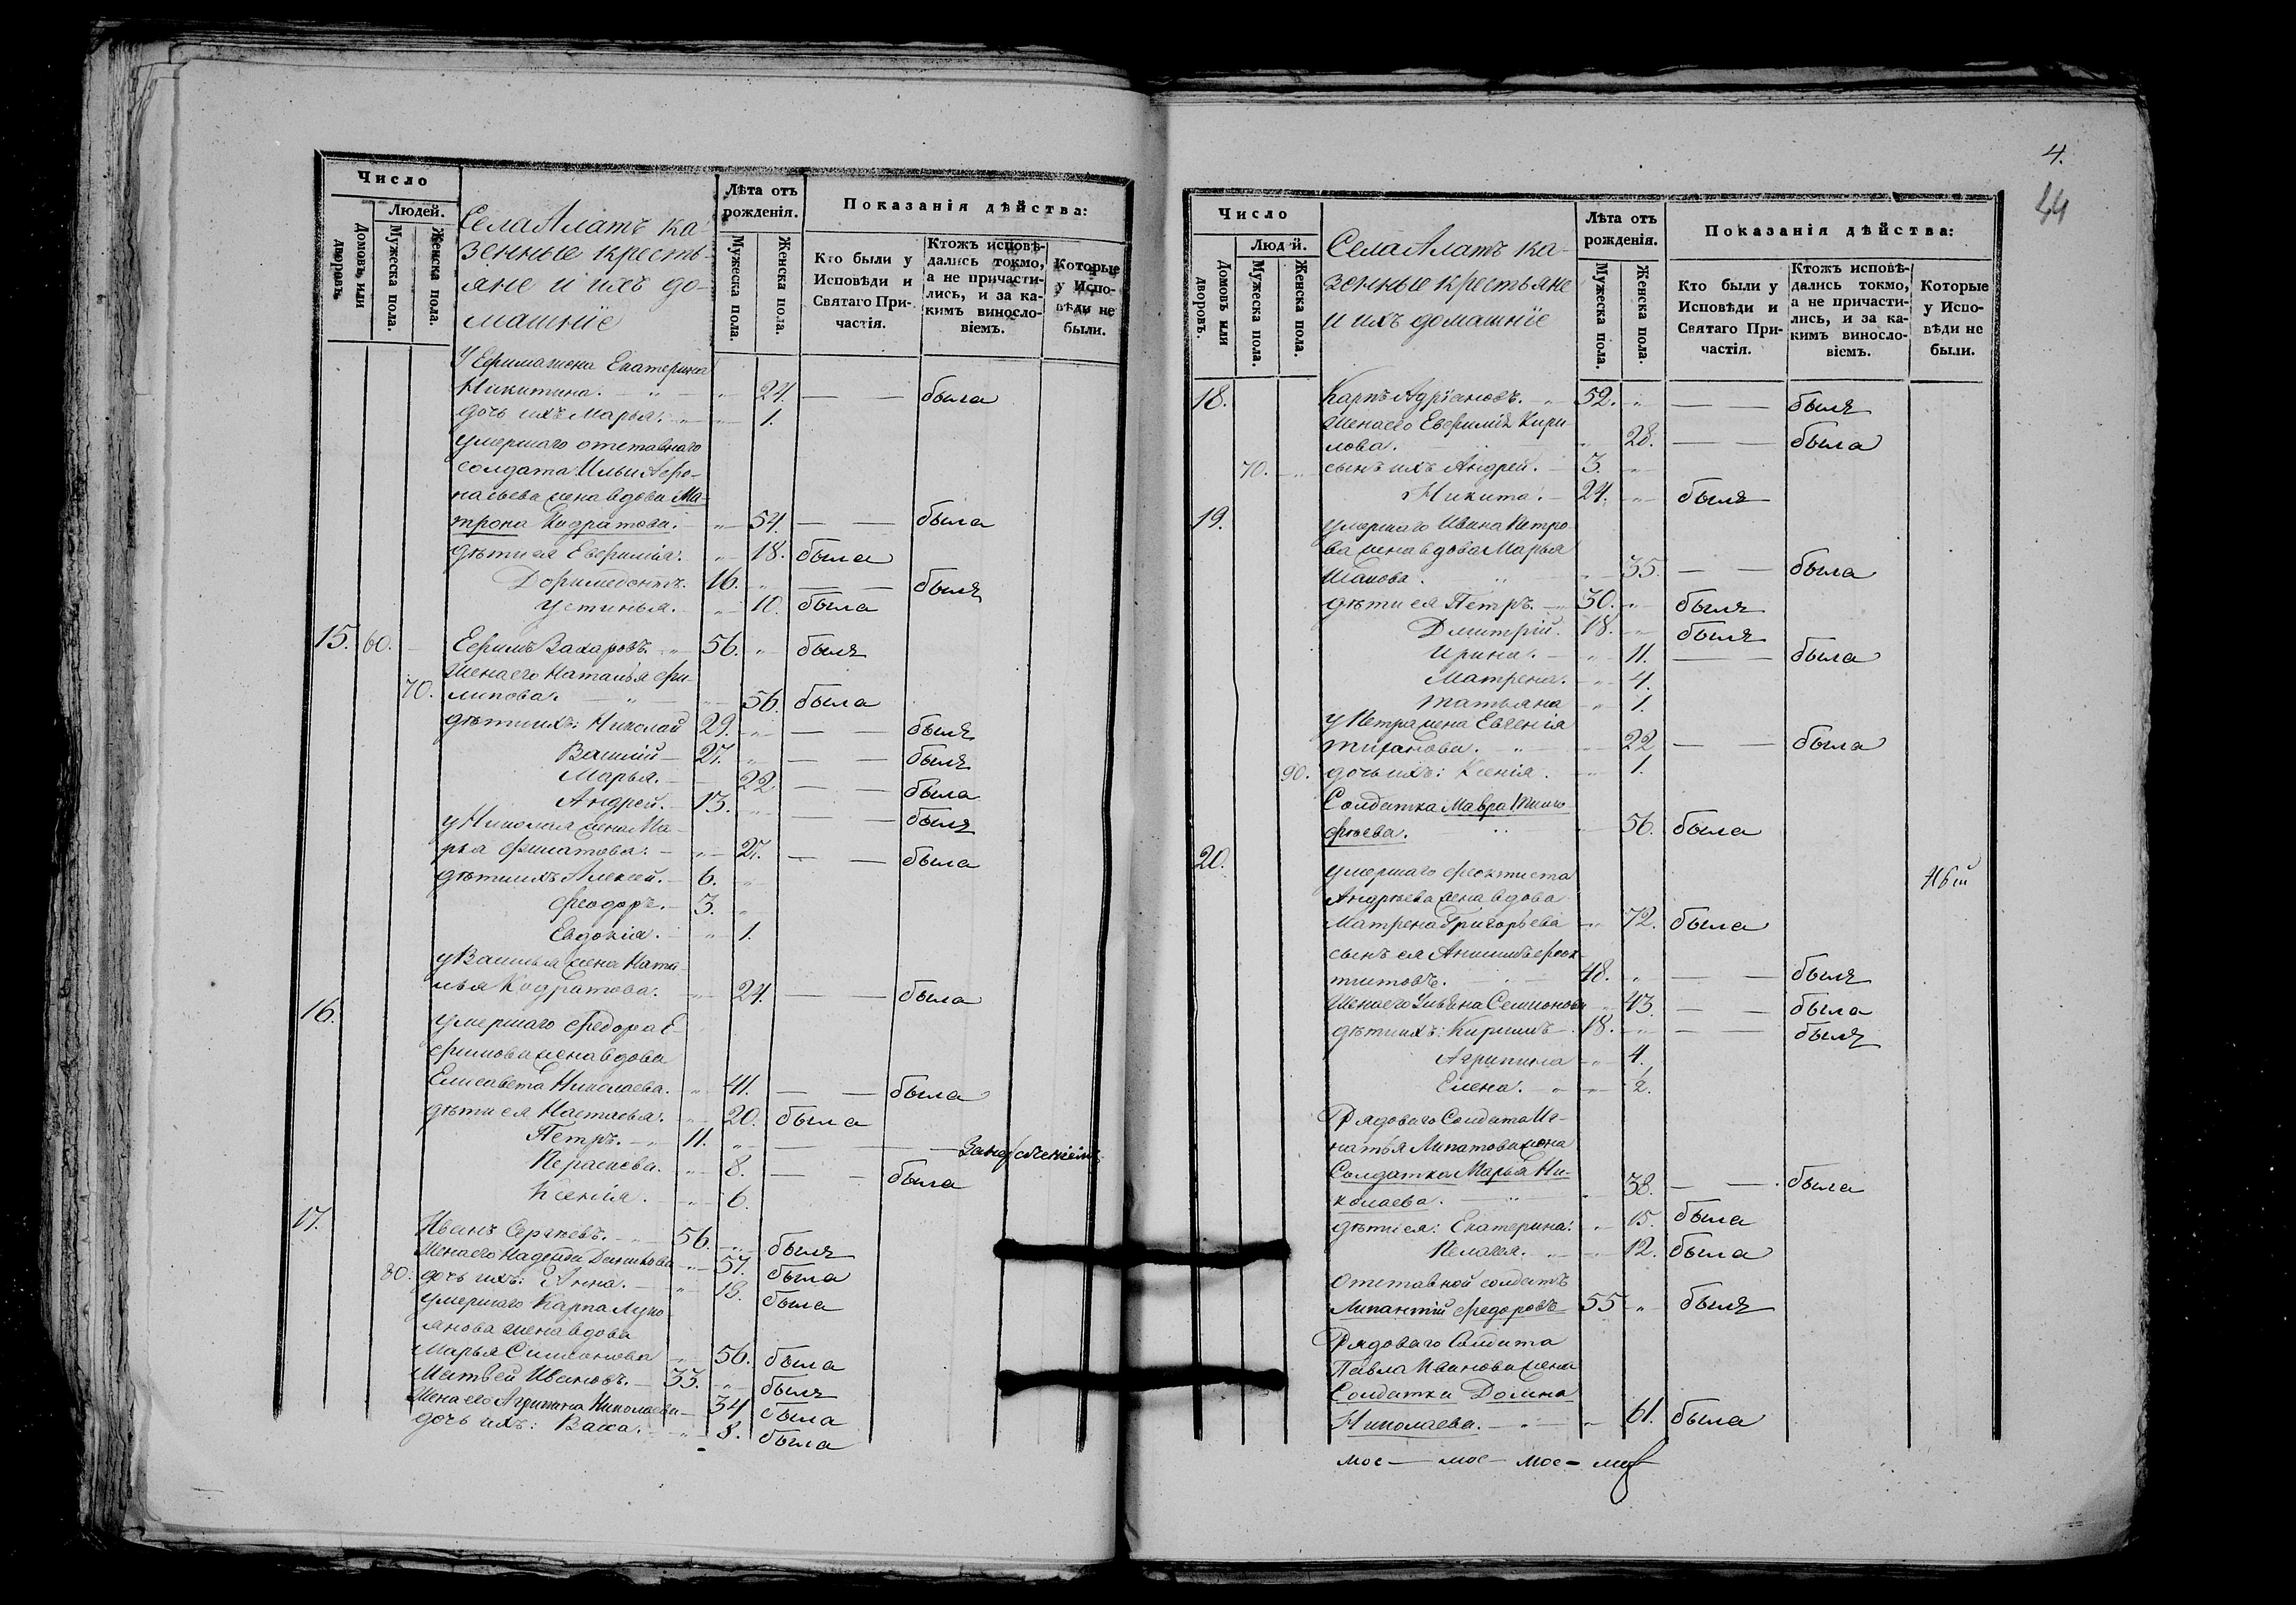 Число
Людей.
Домовъ или дворовъ.
Мужеска пола.
Женска пола.
Села Алатъ ка-
зенные кресть-
яне и ихъ до-
машніе
Лѣта отъ рожденія.
Мужеска пола.
Женска пола.
Показанія дѣйства:
Кто были у Исповѣди и Святаго При-частія.
Ктожъ исповѣ-дались токмо, а не причасти-лись, и за ка-кимъ винословіемъ.
Которые у Испо-вѣди не были.
У Ефима жена Екатерина
Никитина. 24. была
дочь ихъ Марья. 1.
умершаго отставнаго
солдата Ильи Афо-
насьева жена вдова Ма-
трона Кодратова. 54 — была
дѣти ея Евфимія. 18. была
Доримедонтъ. 16. — была
Устинья. 10. была
15. 60. Ефимъ Захаровъ. 56. былъ
Жена его Наталья Фи-
70. липова. 56. была
дѣти ихъ: Николай 29. — былъ
Василій 27. — былъ
Марья. 22 — была
Андрей. 13. — былъ
у Николая жена Ма-
рья Филатова. 27. — была
дѣти ихъ Алексей. 6.
Феодоръ. 3.
Евдокія. 1.
у Василья жена Ната-
лья Кодратова. 24. — была
16. умершаго Федора Е-
фимова жена вдова
Елисавета Николаева. 41. — была
дѣти ея Настасья. 20. была
Петръ. 11. —
Параскева. 8. — была
Ксенія. 6.
17. Иванъ Сергѣевъ. 56. былъ
Жена его Надежда Данилова 57. была
80. дочь ихъ: Анна. 18. была
умершаго Карпа Луко-
янова жена вдова
Марья Симионова 56. была
Матвей Ивановъ. 33. былъ
Жена его Агрипина Николаева 34 была
дочь ихъ: Васса. 8. была
4.
44
Число
Людей.
Домовъ или дворовъ.
Мужеска пола.
Женска пола.
Села Алатъ ка-
зенные крестьяне
и ихъ домашніе
Лѣта отъ рожденія.
Мужеска пола.
Женска пола.
Показанія дѣйства:
Кто были у Исповѣди и Святаго При-частія.
Ктожъ исповѣ-дались токмо, а не причасти-лись, и за ка-кимъ винословіемъ.
Которые у Испо-вѣди не были.
18. Карпъ Адріановъ. 52. — былъ
Жена его Евфимія Кири-
лова. 28. — была
70. сынъ ихъ Андрей. 3.
Никита. 24. былъ
19. умершаго Ивана Петро-
ва жена вдова Марья
Исакова. 55. — была
дѣти ея Петръ. 30. былъ
Дмитрій. 18. былъ
Ирина. 11. — была
Матрена. 4.
Татьяна 1.
у Петра жена Евгенія
22 — была
90. дочь ихъ: Ксенія. 1.
Солдатка Мавра
56. была
20. умершаго Феоктиста
Андрѣева жена вдова
Матрена Григорьева 72. была
сынъ ея Анисимъ Феок-
тистовъ. 48. — былъ
Жена его Ульяна Семионова 43. — была
дѣти ихъ: Кирилъ 18. — былъ
Агрипина 4.
Елена. 2.
Рядоваго Солдата Иг-
натья Липатова жена
Солдатка Марья Ни-
колаева. 38. — была
дѣти ея: Екатерина. 15. была
Пелагея. 12. была
Отставной солдатъ
Липантій Федоровъ 55 былъ
Рядоваго Солдата
Павла Иванова жена
Солдатка Домна
Николаева. 61. была